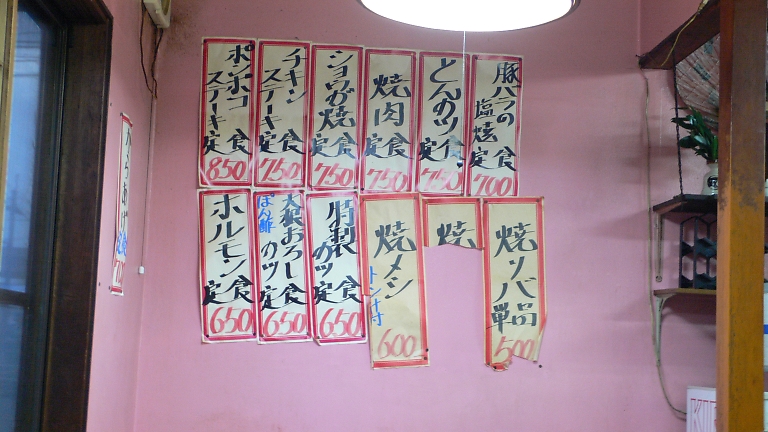 豚バラの
塩焼定食
700
とんカツ
定食
750
焼肉
定食
750
ショウガ焼
定食
750
チキン
ステーキ
定食
750
ポンポコ
ステーキ
定食
850
焼ソバ
単品
500
焼
焼メシ
トン汁付
600
特製
カツ
定食
650
大根おろし
ぽん酢
カツ定食
650
ホルモン
定食
650
からあげ
定食